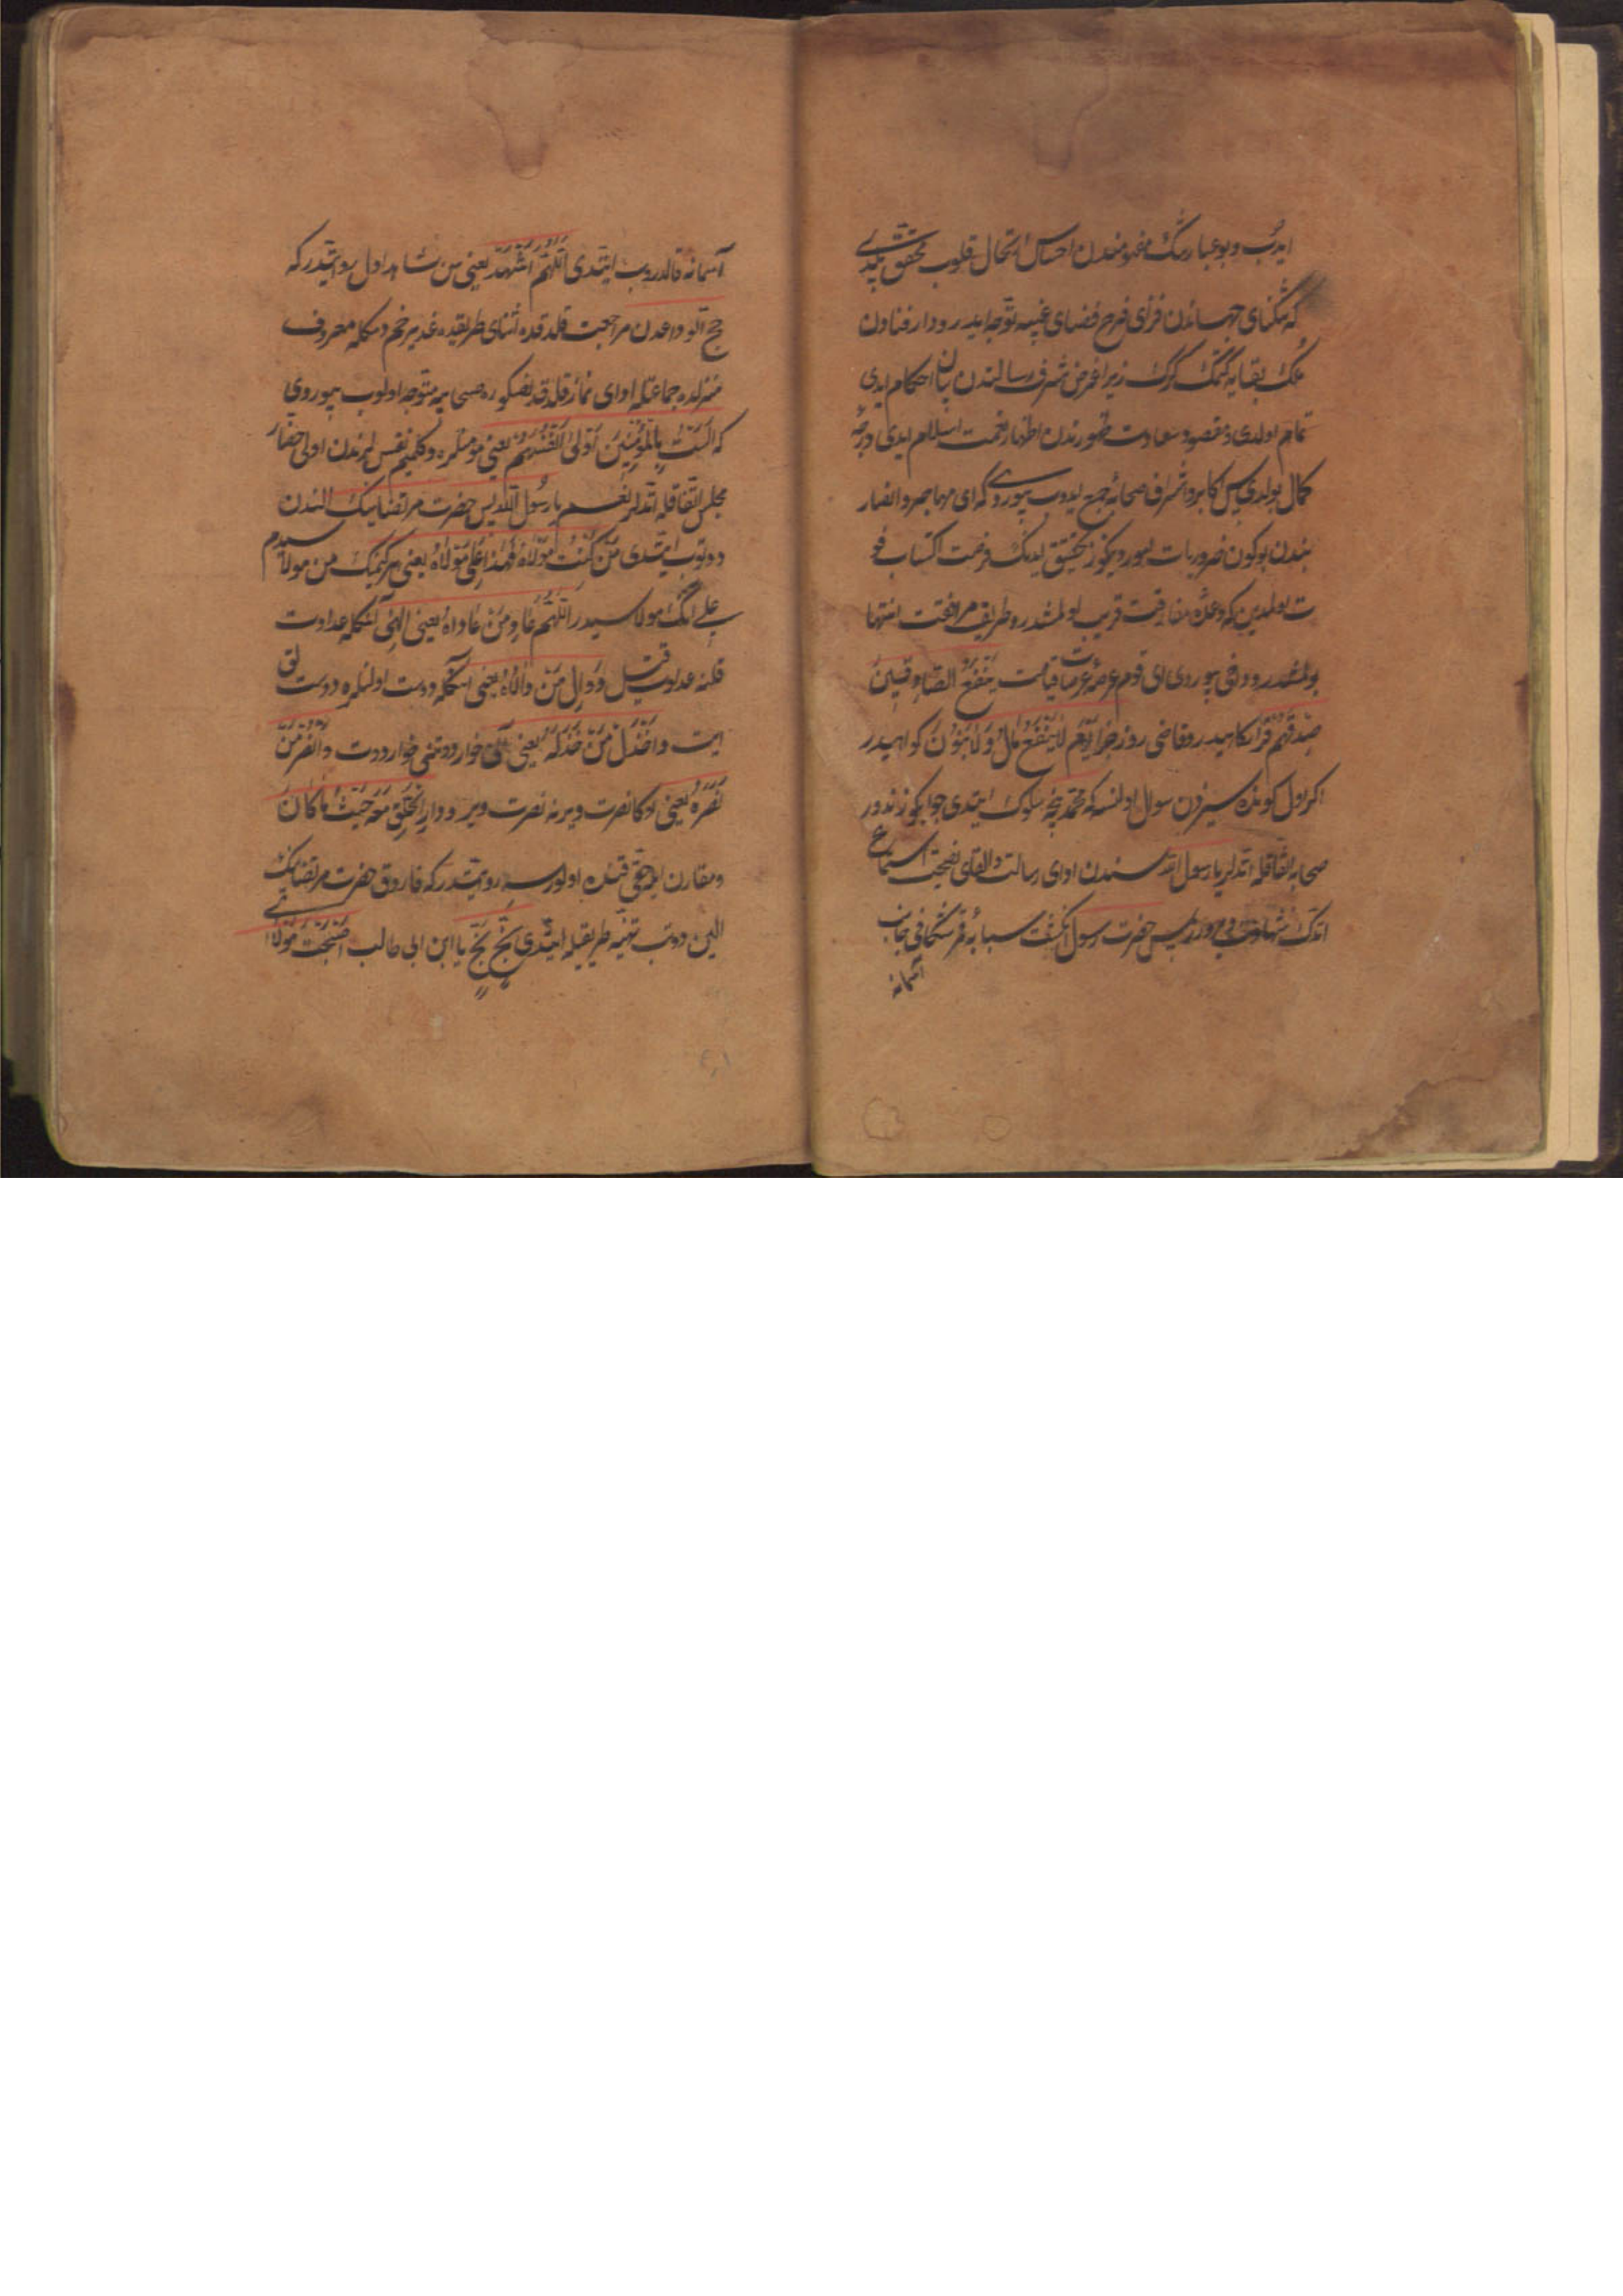 ایدب و بو عبارتنگ مفهومندن احساس ارتحال قلوب محقق بلدی
که تنگنای جهاندن فزای فرح فضای غیبه توجه ایدر و دار فنادن
ملک بقایه گتمک گرک زیرا غرض شرف رسالتدن بیان احکام ایدی
تمام اولدی و مقصود سعادت ظهورندن اظهار نعمت اسلام ایدی درجهٔ
کمال بولدی پس اکابر و اشراف صحابهٔ جمع ایدوب بیوردی که ای مهاجر و انصار
بندن بو کون ضروریات امور دیکوز تحقیق ایدنگ فرصت اکتساب فو
ت بولمدین که وعدهٔ مفارقت قریب اولمشدر و طریق مرافقت انتها
بولمشدر و دافی بیوردی ای قوم عرصهٔ عرصات قیامت ینفع الصادقین
صدقهم قرارکاهیدر و قاضی روز جزا یوم لا ینفع مال ولا بنون کواهیدر
اکر اول کونده سیزدن سوال اولنسه که محمد نیجه سلوک ایتدی جوابکوز ندور
صحابه اتفاقله ایتدلر یا رسول الله سندن ادای رسالت و القای نصیحت استماع
اتدک شهادت ویرورز پس حضرت رسول انگشت سبابهٔ قمر شکافی بجانب
آسمانه
آسمانه قالدروب ایتدی اللهم اشهد یعنی سن شاهد اول روایتدر که
حج الوداعدن مراجعت قلدقده اثنای طریقده غدیر خم دمکله معروف
منزلده جماعتله ادای نماز قلدقدنصکره صحابه یه متوجه اولوب بیوردی
که الست بالمؤمنین اولی انفسهم یعنی مؤمنلره دکلمیم نفسلرندن اولی حضار
مجلس اتفاقله اتدلر نعم یا رسول الله پس حضرت مرتضانیک الندن
دوتوب ایتدی من کنت مولاه فهذا علی مولاه یعنی هر کیمنک من مولاسیدم
علی انگ مولاسیدر اللهم عاد من عاداه یعنی الهی آنگله عداوت
قلنه عداوت قیل و وال من والاه یعنی آنگله دوست اولنلره دوستلق
ایت واخذل من خذله یعنی آنی خوار دوتنی خوار دوت وانصر من
نصره یعنی اوکا نصرت ویرنه نصرت ویر و ودار الحق معه حیث ما کان
ومقارن ایله حقی قنده اولورسه روایتدر که فاروق حضرت مرتضانک
الین دوتب تهنیه طریقیله ایتدی بخ بخ یا ابن ابی طالب اصبحت مولای